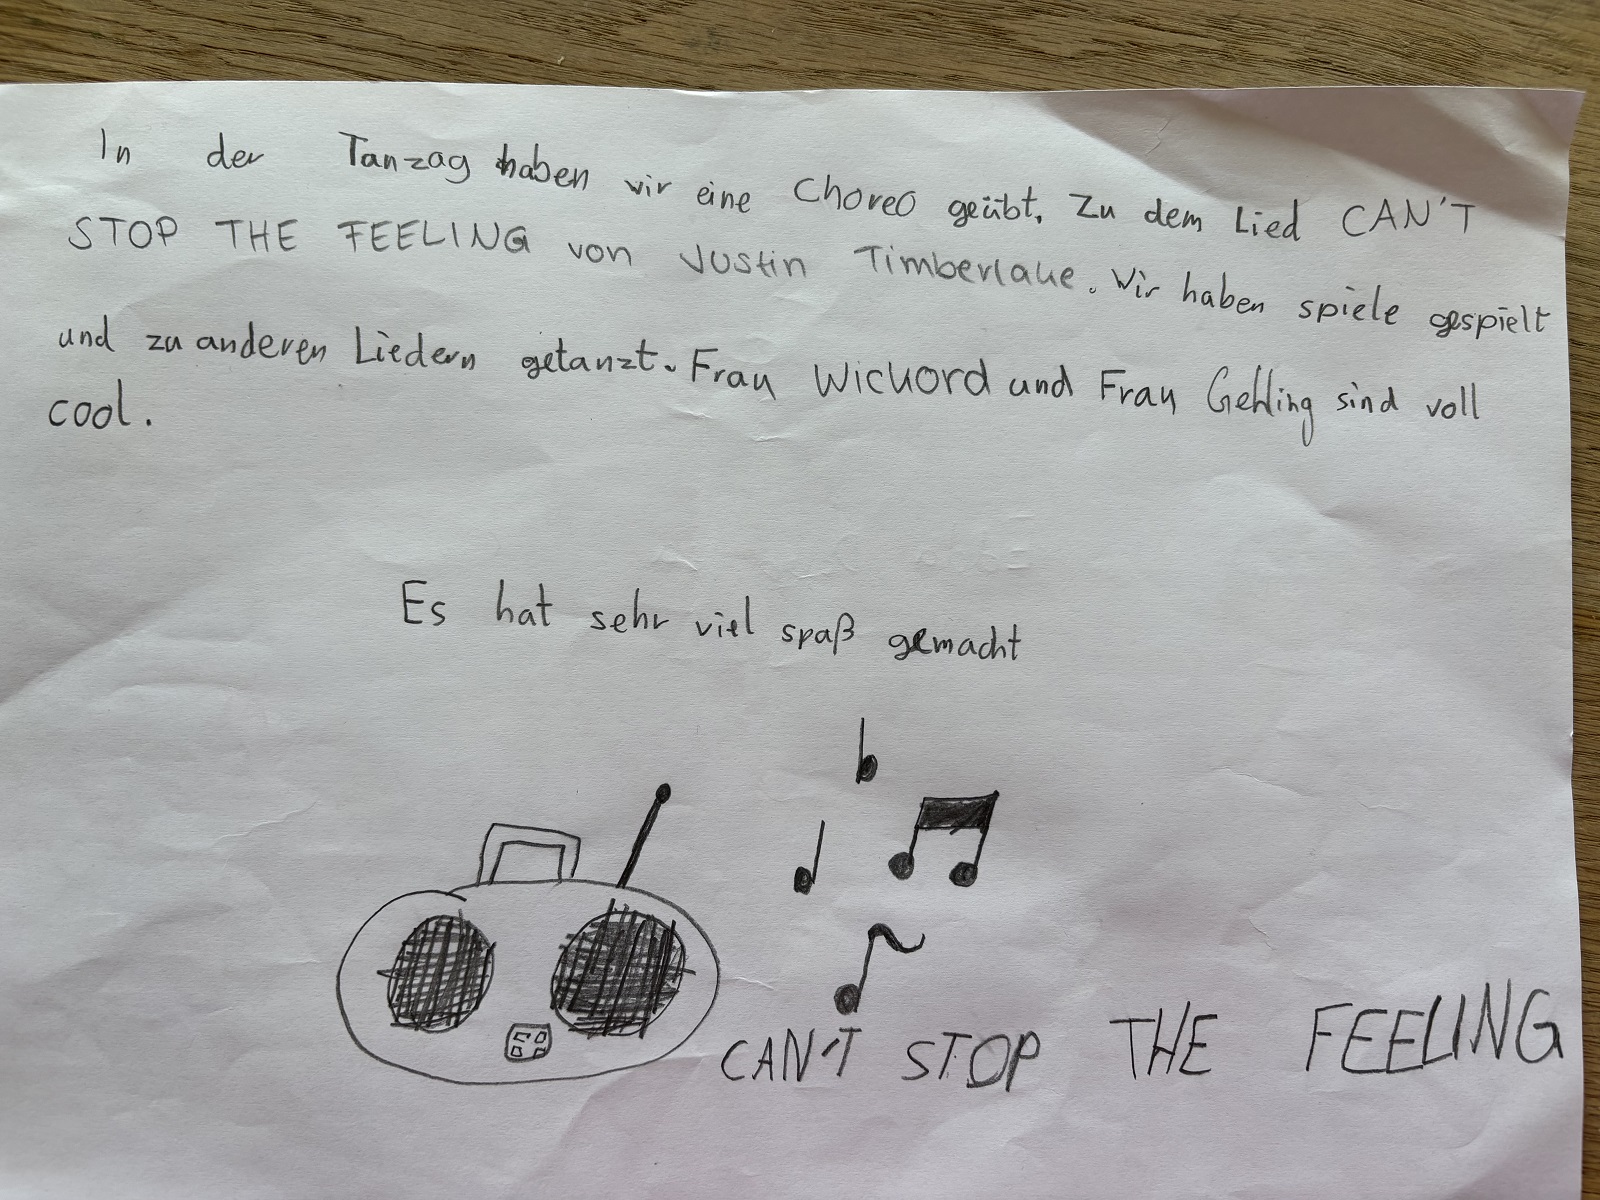 In der Tanzag haben wir eine Choreo geübt. Zu dem Lied CAN'T
STOP THE FEELING von Justin Timberlake. Wir haben spiele gespielt
und zu anderen Liedern getanzt. Frau Wickord und Frau Gehling sind voll
cool.
Es hat sehr viel spaß gemacht
CAN'T STOP THE FEELING